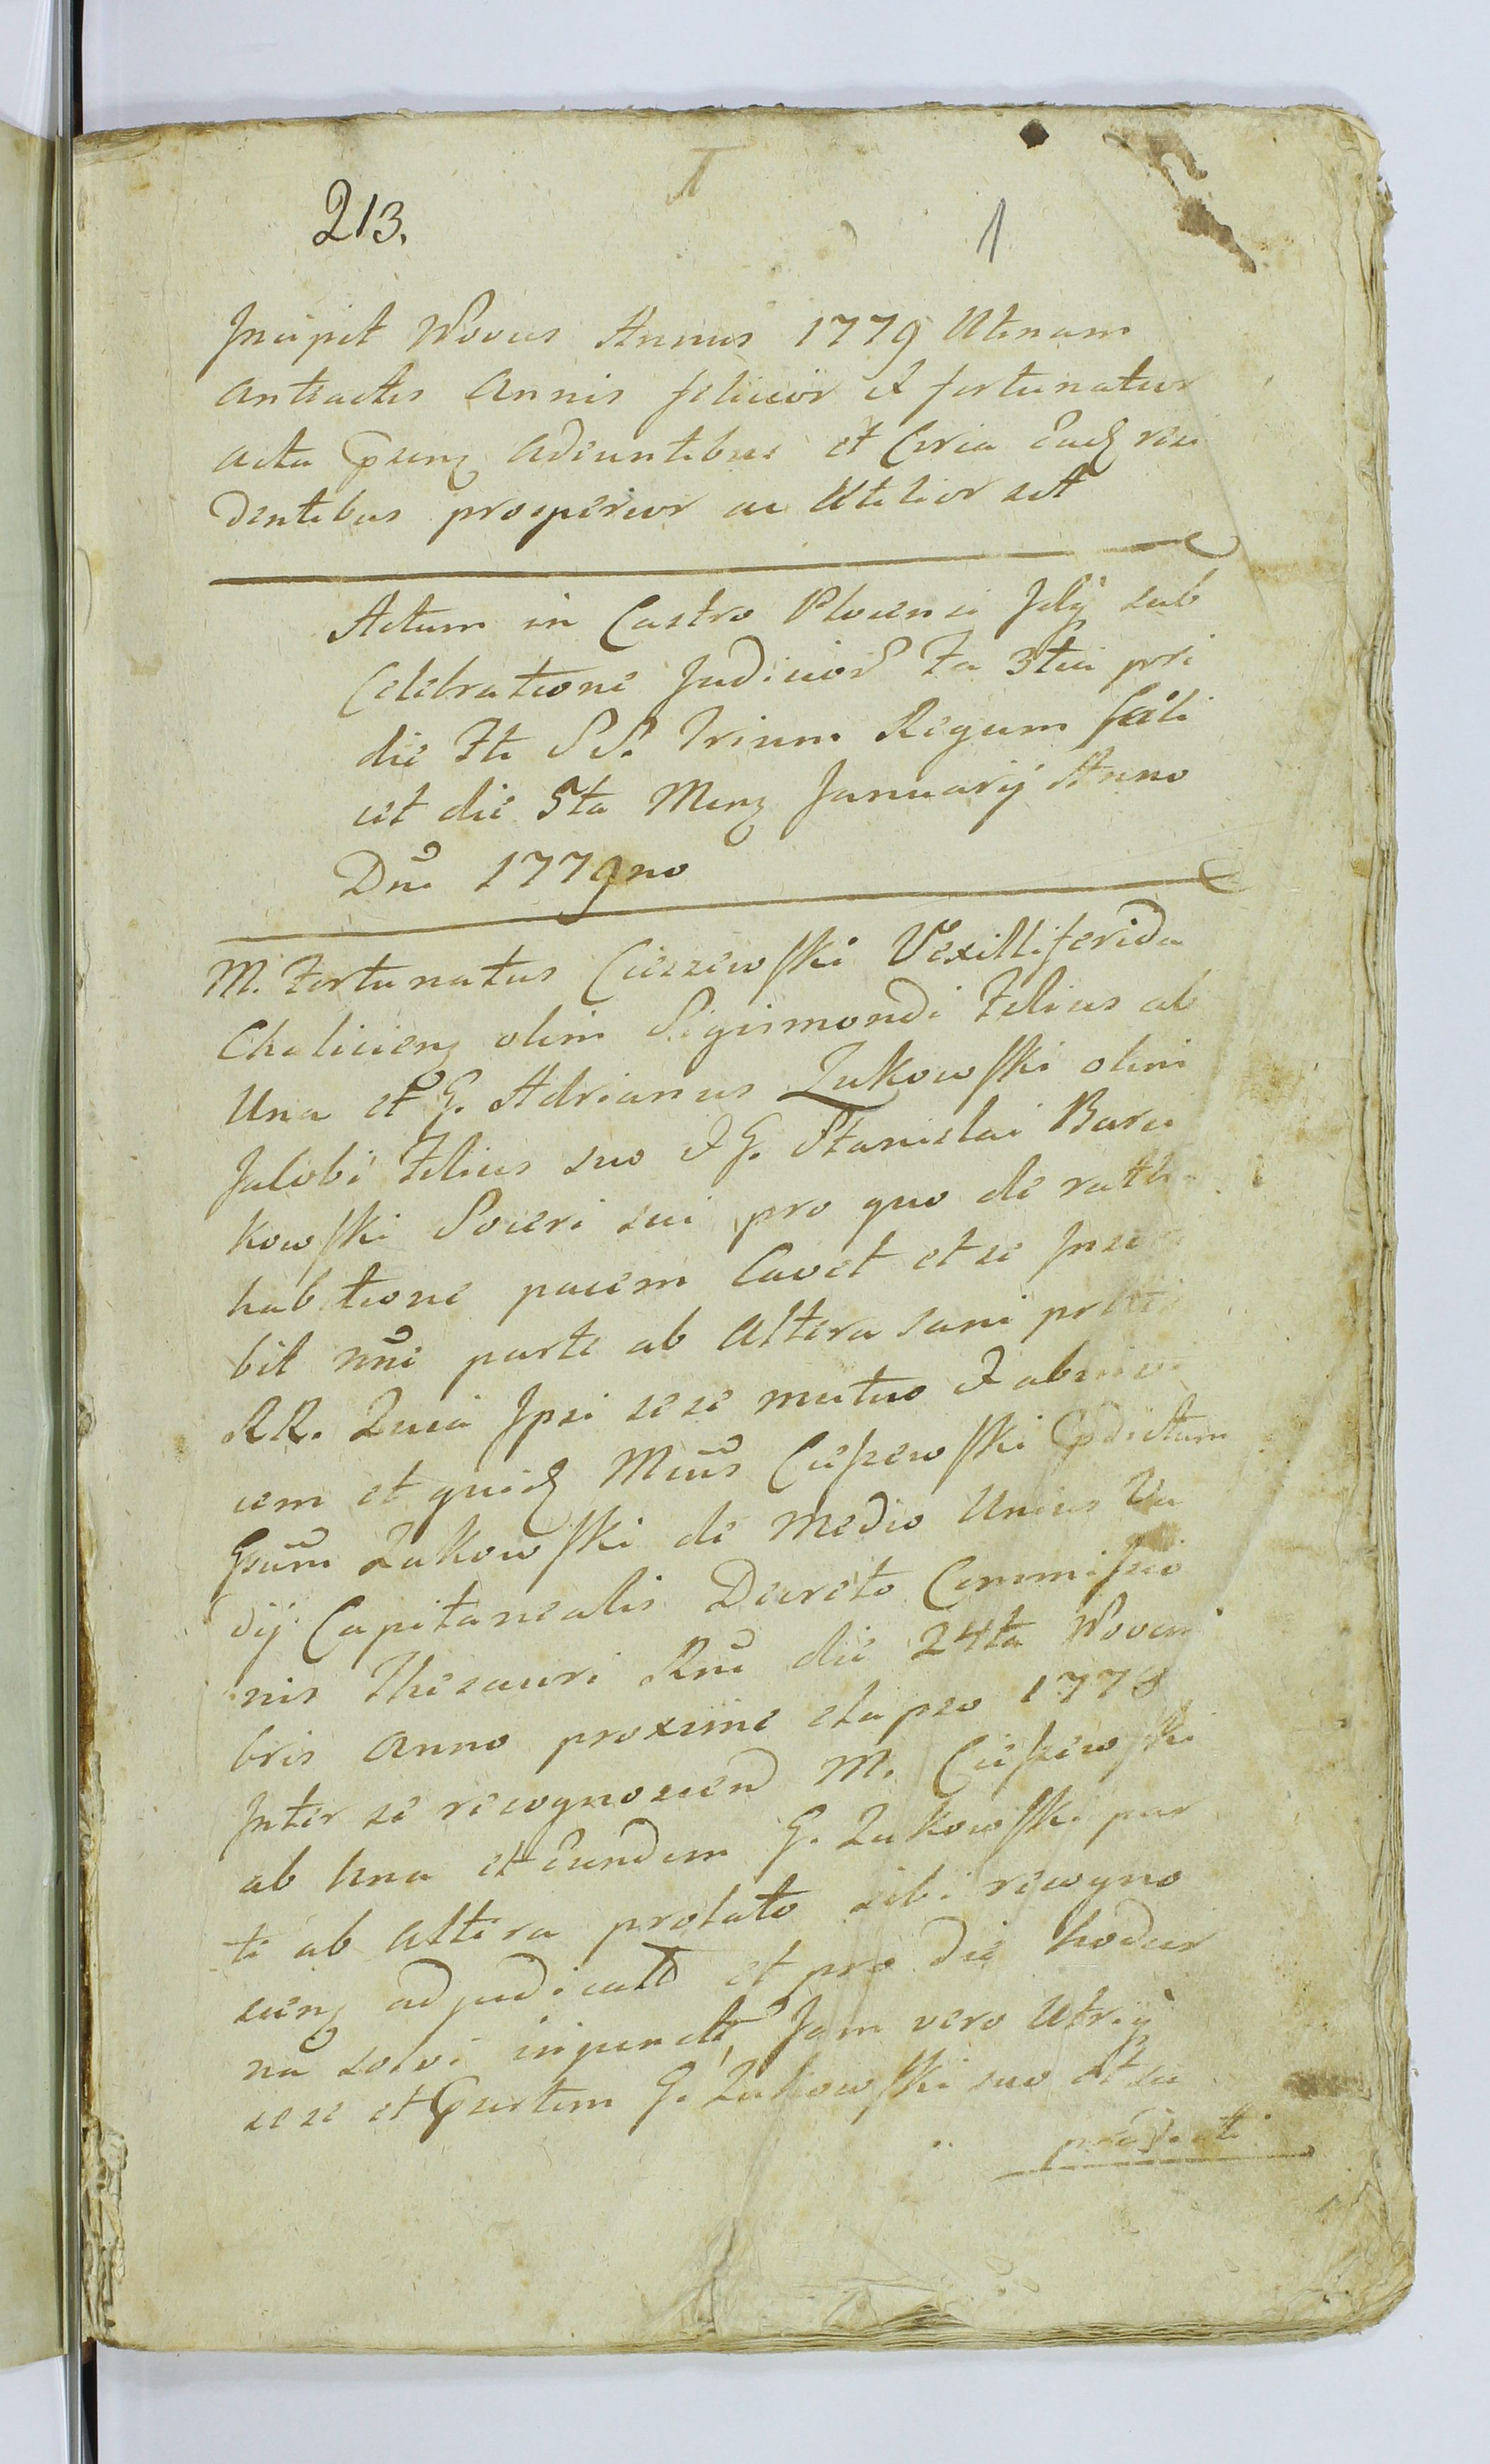 213.
1
Incipit Novus Annus 1779 Utinam
anteactis Annis felicior et fortunatior
acta Ppenz adeuntibus et Circa Eadz resi
dentibus prosperior ac Utilior sit
Actum in Castro Plocensi sub
Celebratione Judicior Fa 3tia pri
die Fti SS. Trium Regum scili
cet die 5ta Menz Januarij Anno
Dni 1779no
M. Fortunatus Cieszewski Vexillferida
olim Sigismondi Filius ab
Una et G. Adrianus Zukowski olim
Jacobi Filius suo et G. Stanislai Barci
kowski Soceri sui pro quo de rathi
habitione pacem Cavet et se Inscri
bit nni parte ab Altera sani
RR. Quia Ipsi sese mutuo et abinvi
cem et quidz Mcus Cieszewski Pdictum
Gsum Zukowski de Medio Unius Va
dij Capitanealis Decreto Commissio
nis Thesauri Rni die 24ta Novem
bris Anno proxime elapso 1778
Inter se recognoscend M. Cieszewski
ab Una et Eundem G. Zukowski par
te ab Altera prolato sibi recogno
scenz adjudicat et pro die hodier
na solvi injunct, Jam vero Utrinq
sese et G. Zukowski suo et su